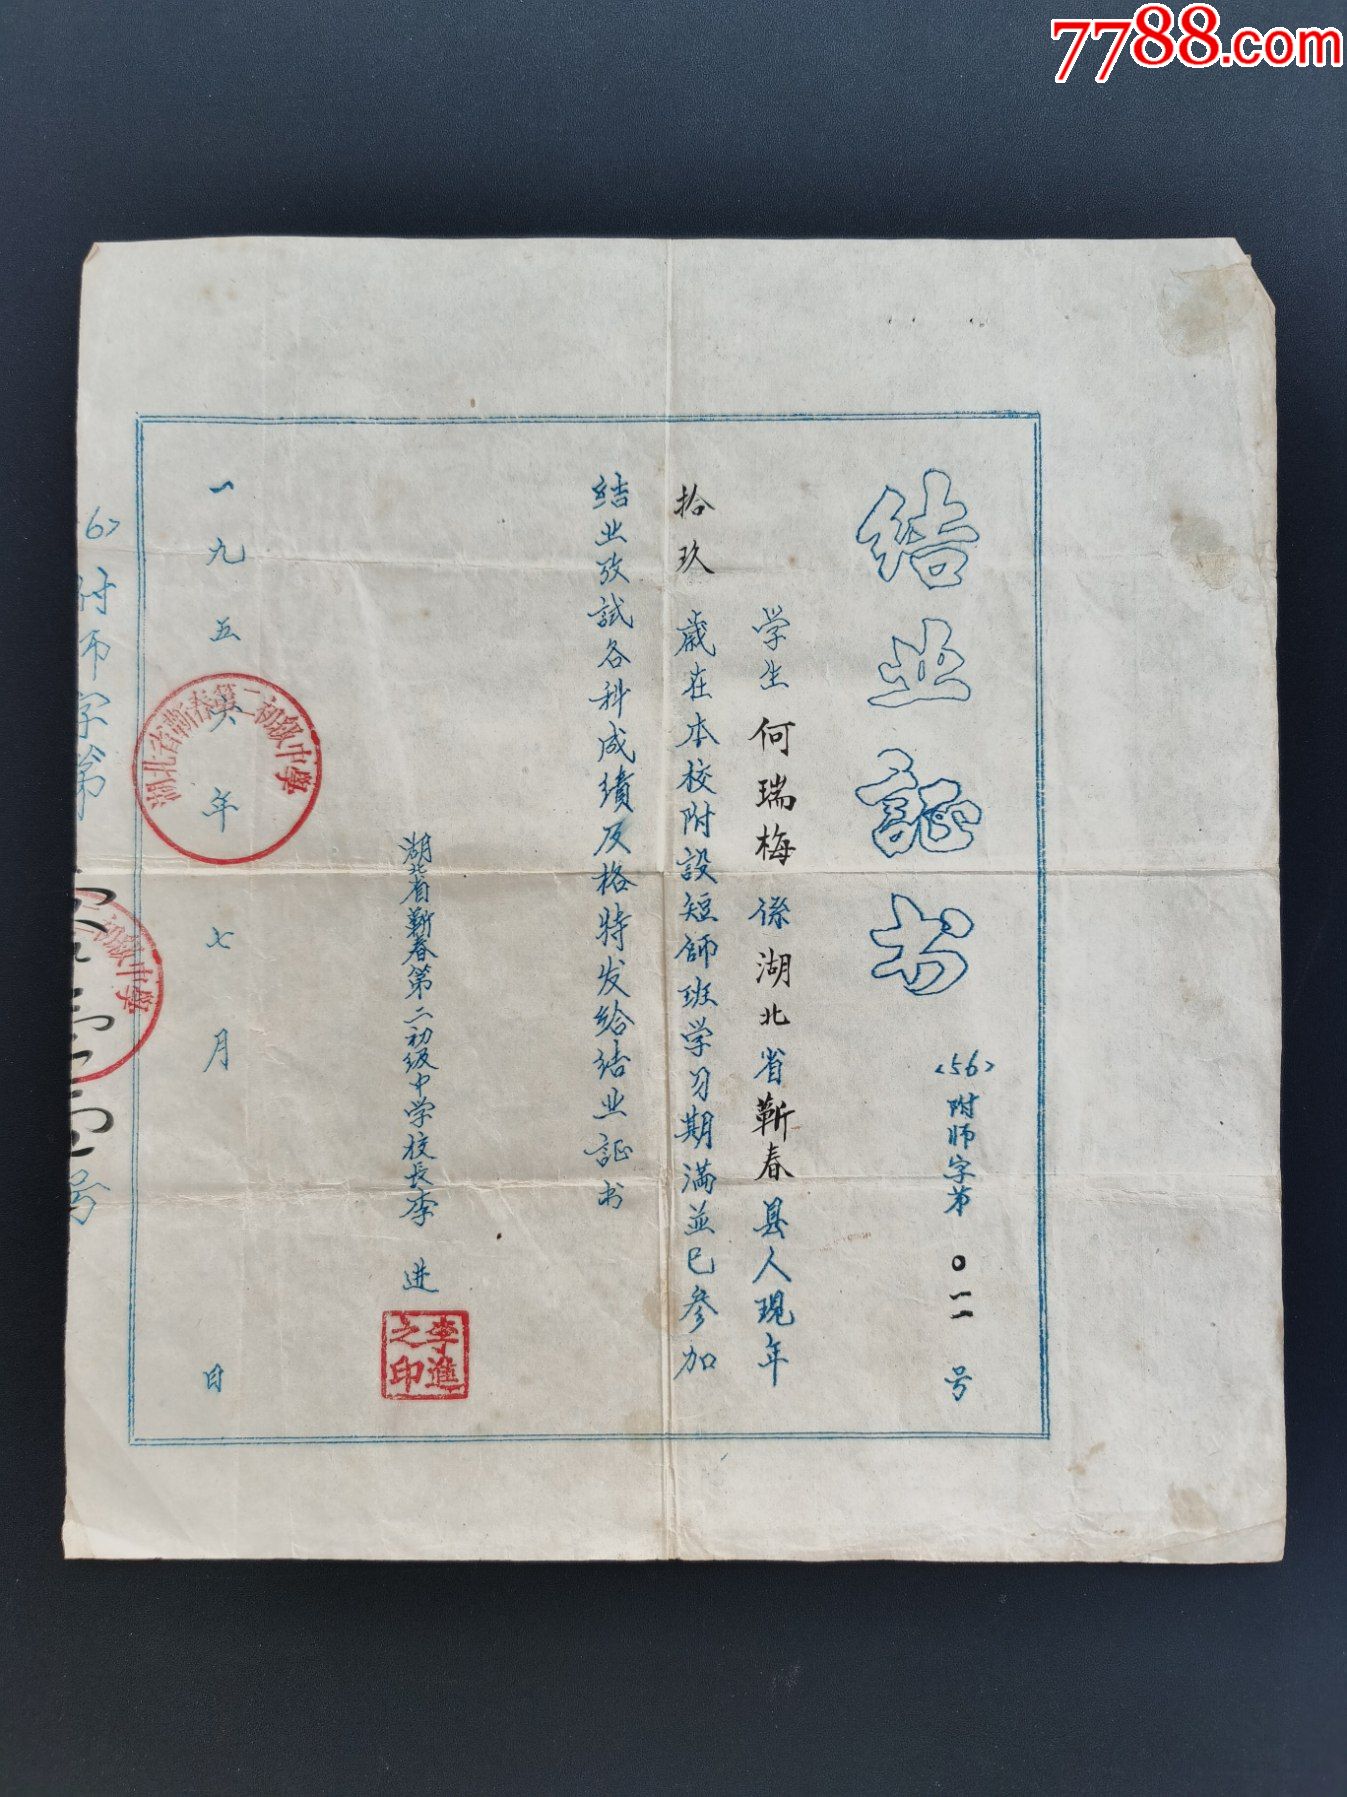 7788.com
结业証书
<56>附师字第〇一一号
学生何瑞梅係湖北省蕲春县人现年
拾玖歲在本校附設短師班学习期满並已参加
结业攷試各科成績及格特发给结业証书
湖北省蕲春第二初级中学校長李进
李進之印
一九五六年七月 日
湖北省蕲春第二初級中學
6>附师字第
号
二初級中學